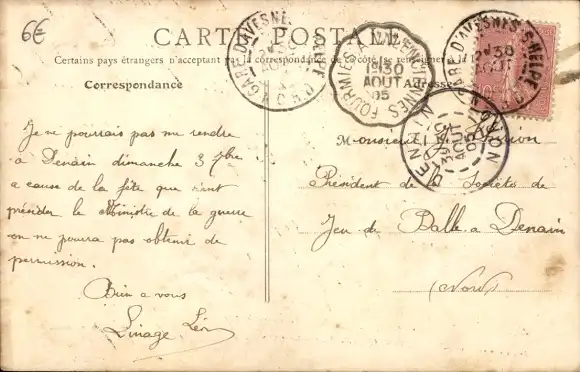 6€
CARTE POSTALE
Certains pays étrangers n'acceptant pas la correspondance de ce côté, se renseigner à la
Correspondance
Adresse
GARE D'AVESNES-S-HELPE
30
AOUT
FOURMIES VALENCIENNES
1930
AOUT
05
GARE D'AVESNES-S-HELPE
30
AOUT
DENAIN
30
AOUT
05
NORD
Je ne pourrais pas me rendre
a Denain dimanche 3 7bre
a cause de la fête que vient
présider le Ministre de la guerre
on ne pourra pas obtenir de
permission.
Bien a vous
Linage Léon
Monsieur
Président de Societé de
Jeu de Balle a Denain
(Nord)